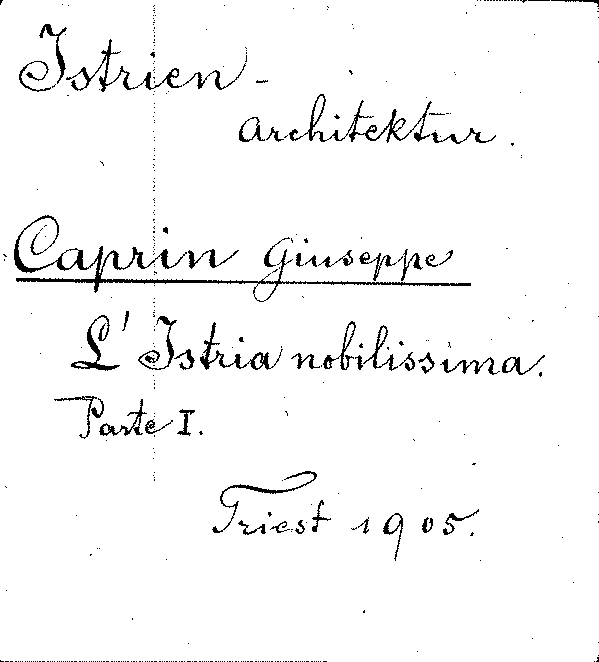 Istrien-
architektur.
Caprin Giuseppe
L'Istria nobilissima.
Parte I.
Triest 1905.